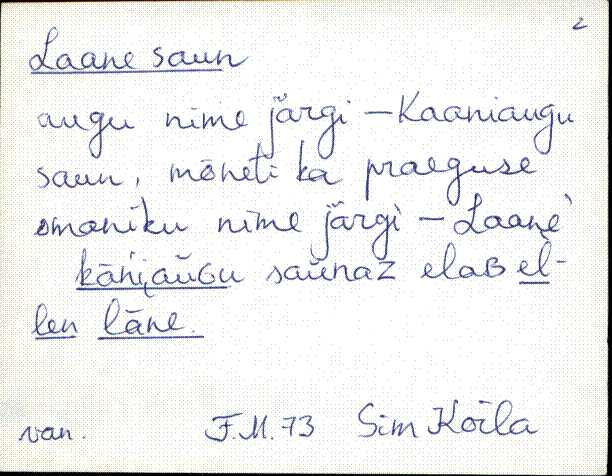 2
Laane saun
augu nime järgi – Kaaniaugu
saun, mõneti ka praeguse
omaniku nime järgi – Laane
kāni̮aùGu saùnaz elaB el-
len lāne.
van. F.M. 73 Sim Koila